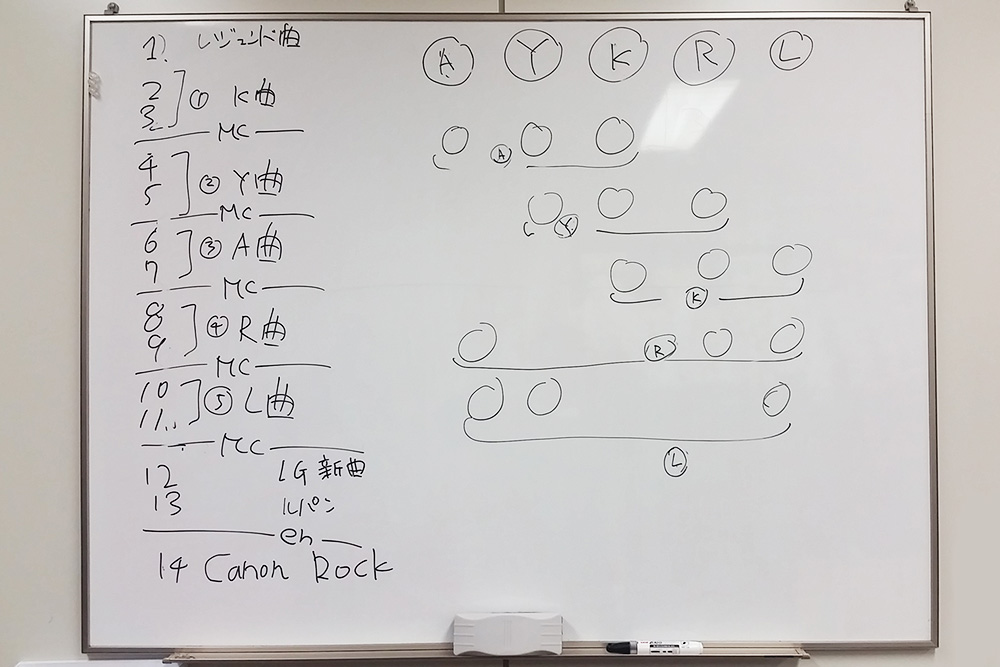 1) レジェンド曲
2
3 ① K曲
MC
4
5 ② Y曲
MC
6
7 ③ A曲
MC
8
9 ④ R曲
MC
10
11 ⑤ L曲
MC
12 LG 新曲
13 ルパン
en
14 Canon Rock
A Y K R L
A
Y
K
R
L